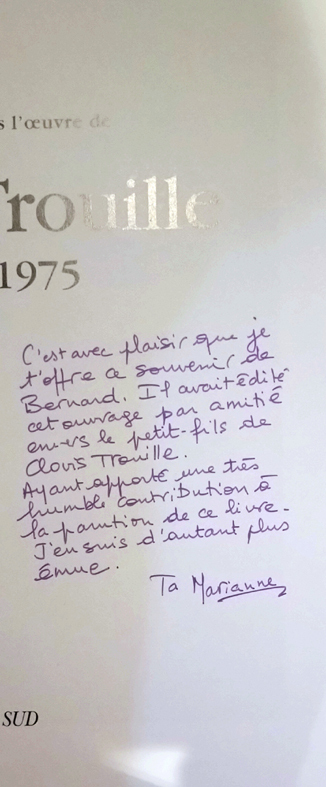 s l'œuvre de
Trouille
1975
C'est avec plaisir que je
t'offre ce souvenir de
Bernard. Il avait édité
cet ouvrage par amitié
envers le petit-fils de
Clovis Trouille.
Ayant apporté une très
humble contribution à
la parution de ce livre.
J'en suis d'autant plus
émue.
Ta Marianne
SUD